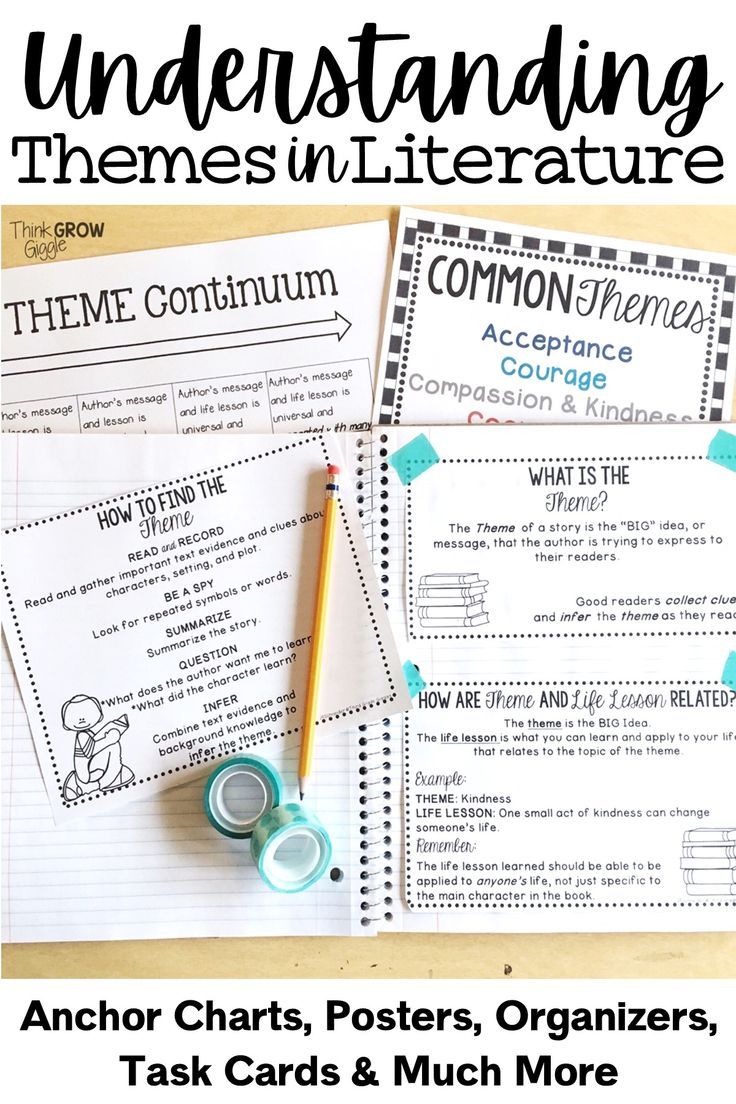 Understanding
Themes in Literature
Think GROW
Giggle
THEME Continuum
Author's message
and life lesson is
universal and
Author's message
and lesson is
Author's message
and lesson is
universal and
COMMON Themes
Acceptance
Courage
Compassion & Kindness
HOW TO FIND THE
Theme
READ and RECORD
Read and gather important text evidence and clues about
characters, setting, and plot.
BE A SPY
Look for repeated symbols or words.
SUMMARIZE
Summarize the story.
QUESTION
*What does the author want me to learn?
*What did the character learn?
INFER
Combine text evidence and
background knowledge to
infer the theme.
WHAT IS THE
Theme?
The Theme of a story is the "BIG" idea, or
message, that the author is trying to express to
their readers.
Good readers collect clue
and infer the theme as they read
HOW ARE Theme AND Life Lesson RELATED?
The theme is the BIG Idea.
The life lesson is what you can learn and apply to your life
that relates to the topic of the theme.
Example:
THEME: Kindness
LIFE LESSON: One small act of kindness can change
someone's life.
Remember:
The life lesson learned should be able to be
applied to anyone's life, not just specific to
the main character in the book.
Anchor Charts, Posters, Organizers,
Task Cards & Much More